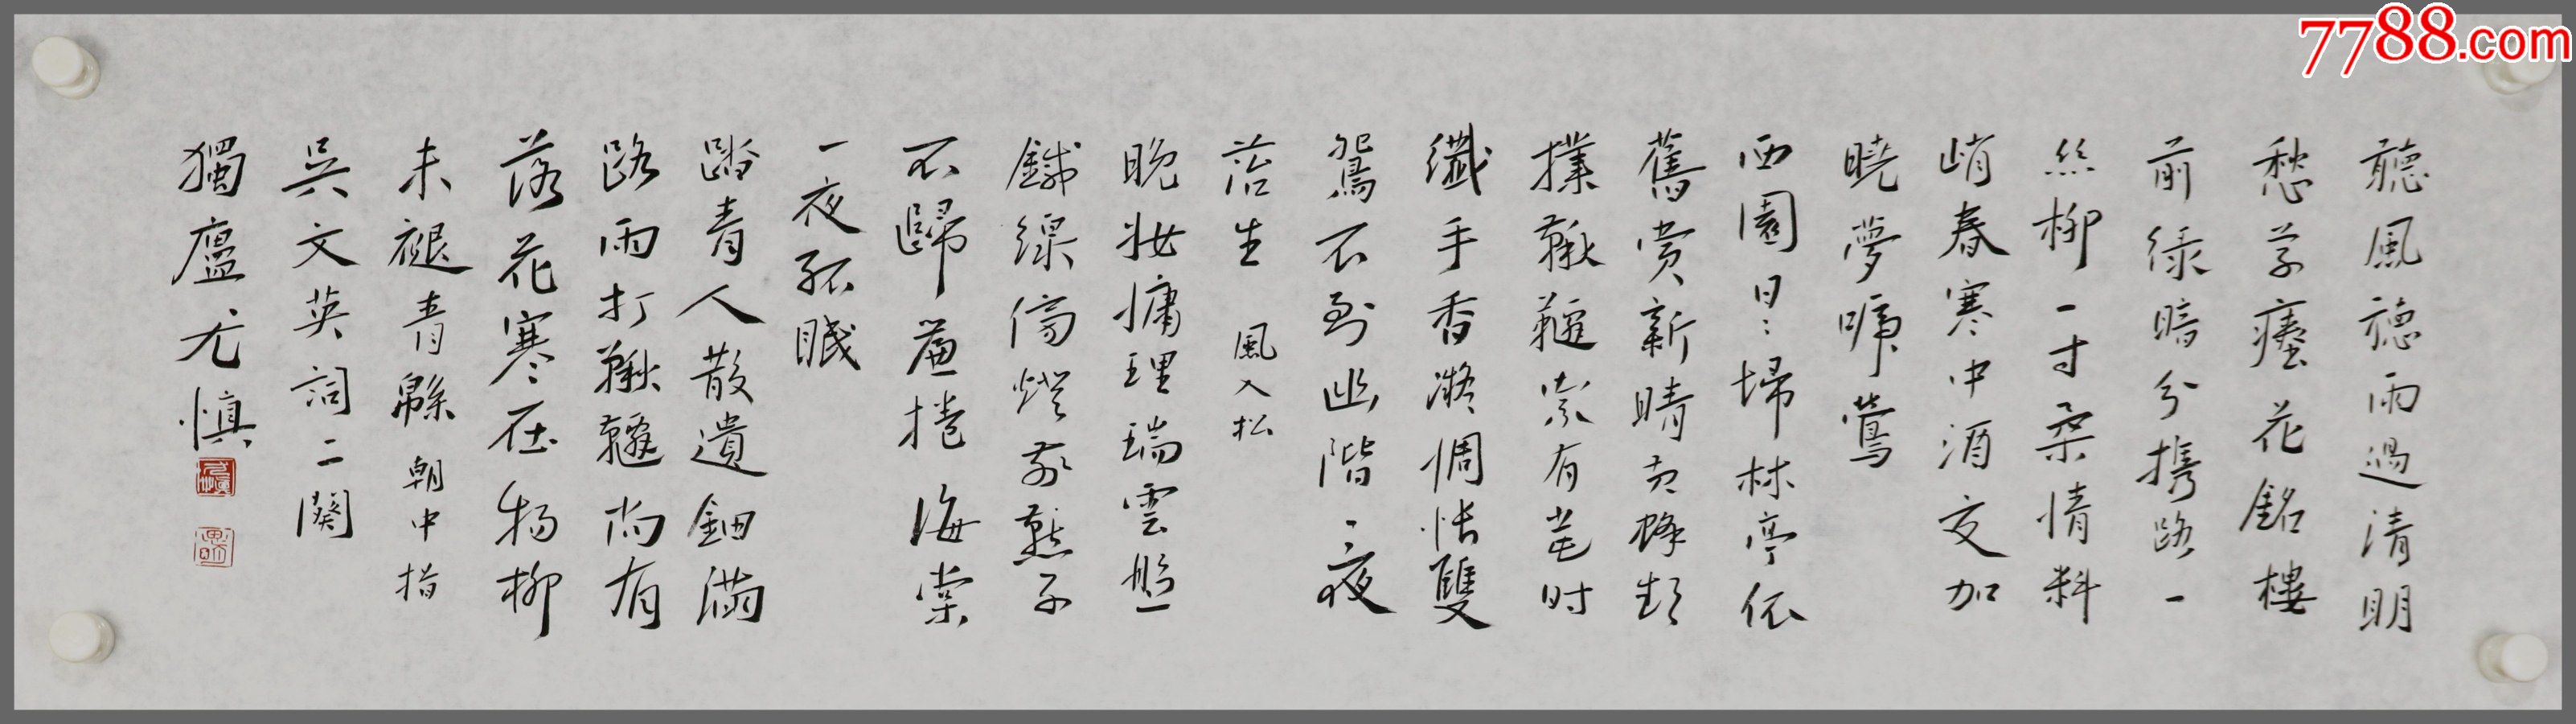 聽風聽雨過清明
愁草瘞花銘樓
前綠暗分携路一
絲柳一寸柔情料
峭春寒中酒交加
曉夢啼鶯
西園日〻掃林亭依
舊賞新晴黃蜂頻
撲鞦韆索有當时
纖手香凝惆悵雙
鴛不到幽階一夜
苔生 風入松
晚妝慵理瑞雲盤
鍼線傍燈前燕子
不歸簾捲海棠
一夜孤眠
踏青人散遺鈿滿
路雨打鞦韆尚有
落花寒在楊柳
未褪青緜 朝中措
吳文英詞二闋
獨廬尤慎
7788.com